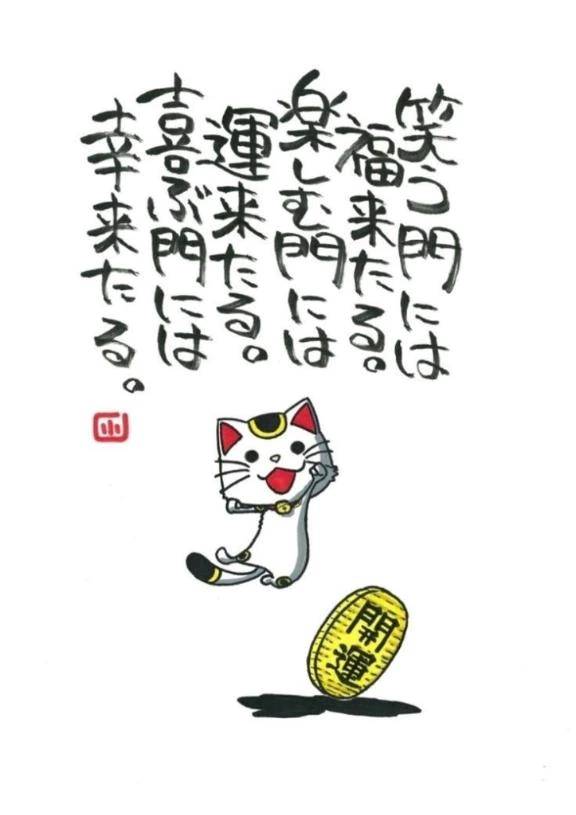 笑う門には
福来たる。
楽しむ門には
運来たる。
喜ぶ門には
幸来たる。
開運